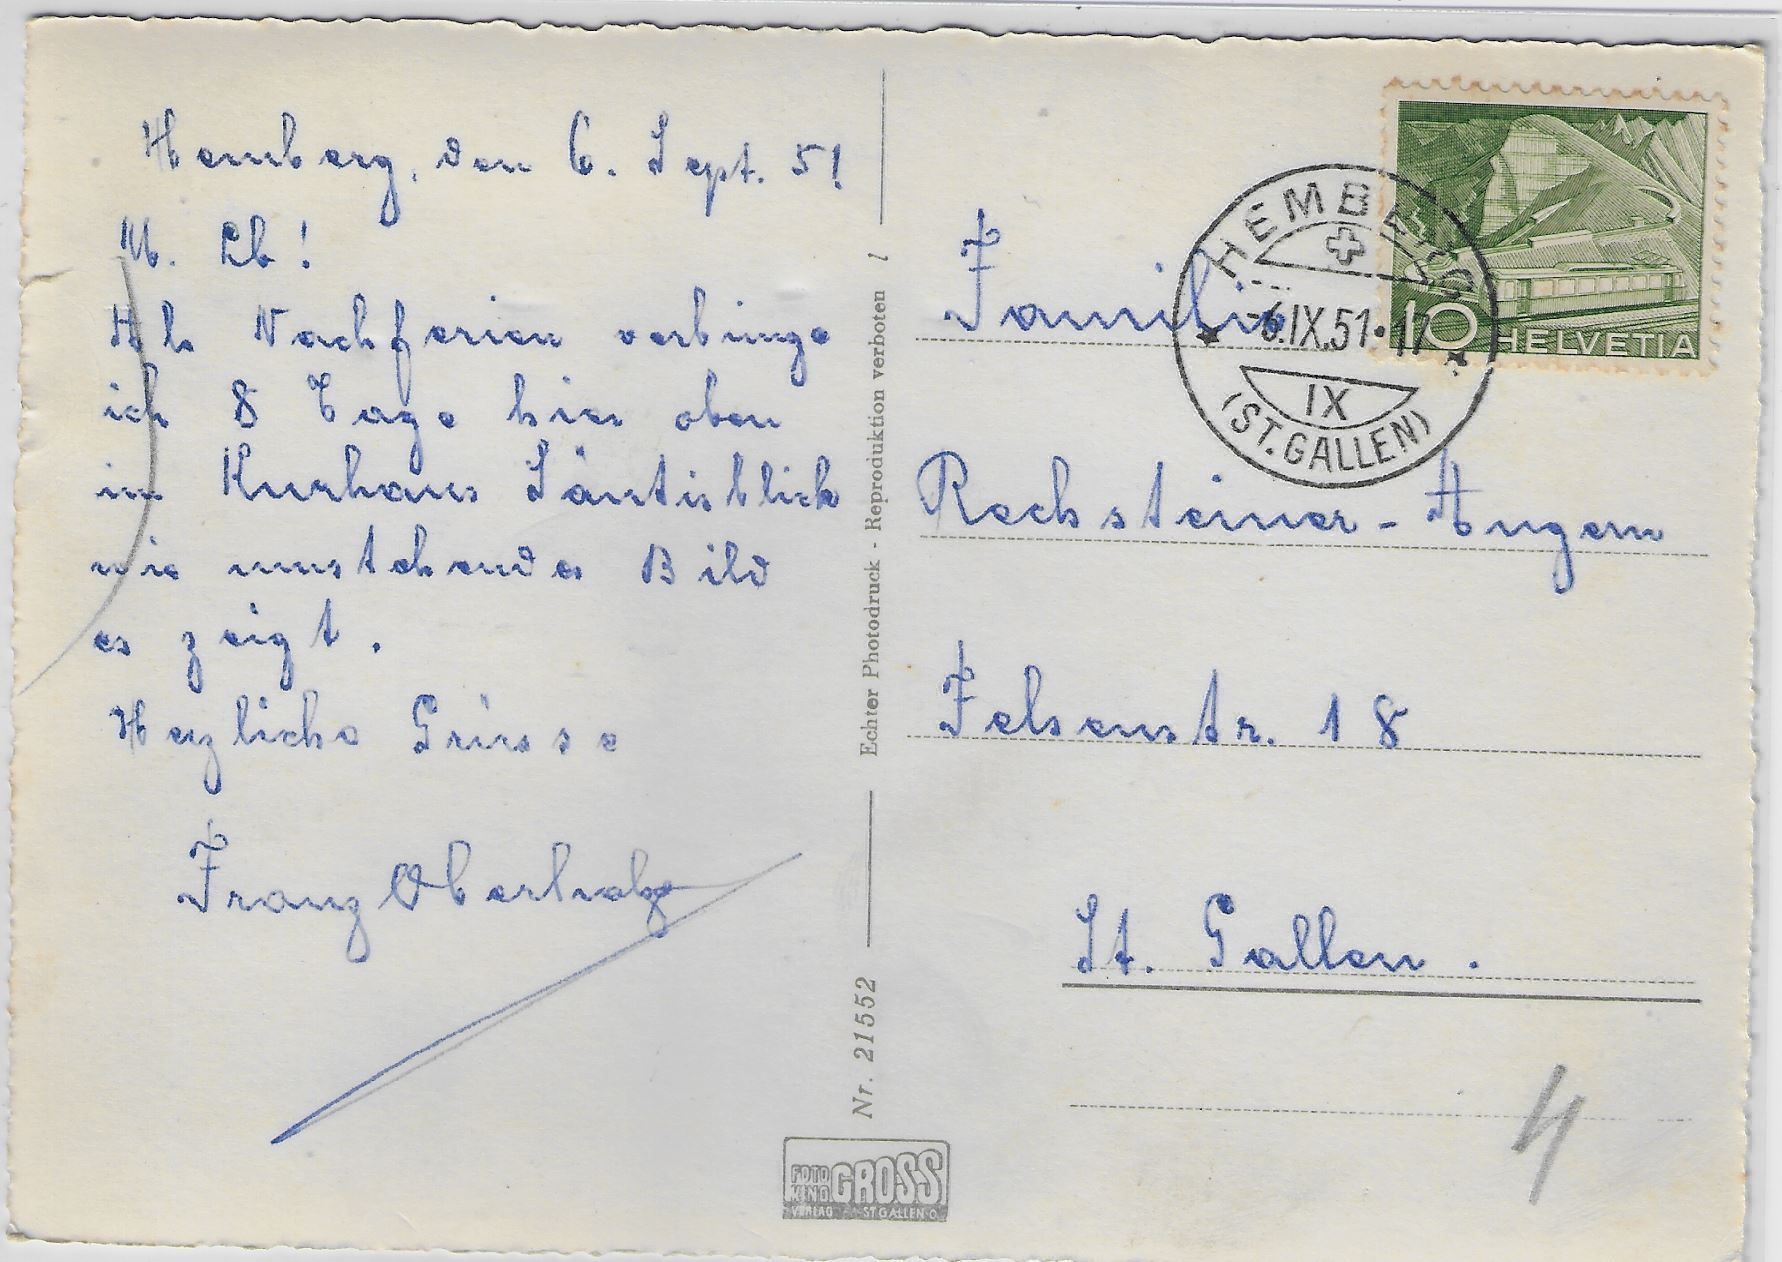 Hemberg, den 6. Sept. 51
M. Lb!
Als Nachferien verbringe
ich 8 Tage hier oben
im Kurhaus Säntisblick
wie umstehendes Bild
es zeigt.
Herzliche Grüsse
Franz
Echter Photodruck - Reproduktion verboten
Nr. 21552
FOTO KINO GROSS
VERLAG ST GALLEN O
HELVETIA
10
HEMBERG
-6.IX.51.17
IX
(ST. GALLEN)
Familie
Rechsteiner - Angern
Felsenstr. 18
St. Gallen.